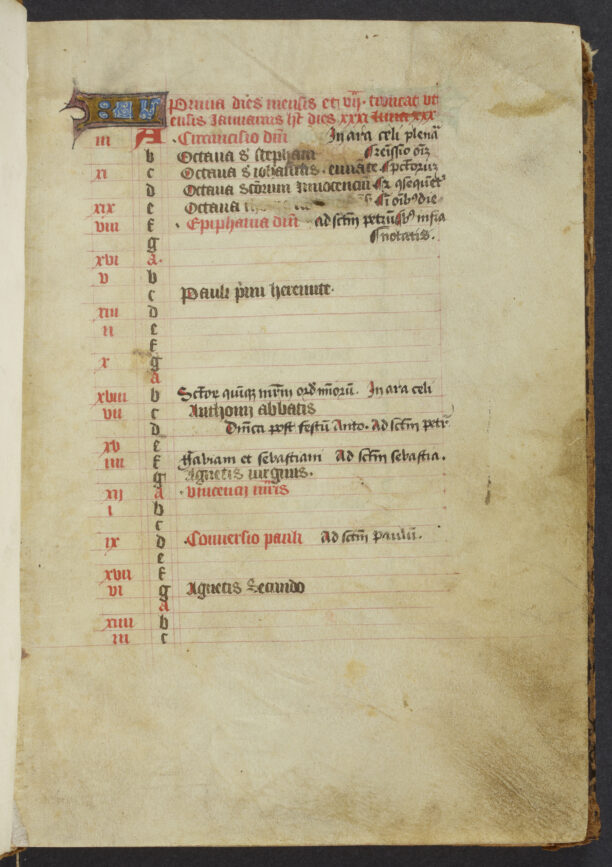 KL Prima dies mensis et vij· truncat ut
ensis Januarius ht dies xxxi luna xxx
iii A · Circuncisio dni In ara celi plena
b Octava s stephani remissio
xi c Octava s iohannis Spctorum
d Octava sctorum Innocenciu
xix e Octava die
viii f · Epiphania dni ad sctm petru infra
g notatis.
xvi a ·
v b
c Pauli primi heremite·
xiii d
ii e
f
x g
a
xviii b Sctor quinq mrm ord mioru. In ara celi
vii c Anthonii abbatis
d Dnica post festu Anto. Ad sctm petr
xv e
iiii f ffabiani et sebastiani Ad sctm sebastia.
g Agnetis virginis.
xij a · vincencij mris
i b
c
ix d · Conversio pauli Ad sctm paulu.
e
xvii f
vi g Agnetis Secundo
a
xiiii b
iii c